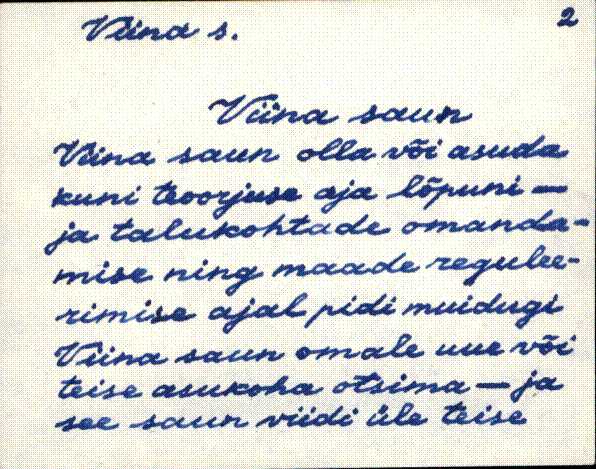 Viina s.
2
Viina saun
Viina saun olla või asuda
kuni teoorjuse aja lõpuni —
ja talukohtade omanda-
mise ning maade regulee-
rimise ajal pidi muidugi
Viina saun omale uue või
teise asukoha otsima — ja
see saun viidi üle teise